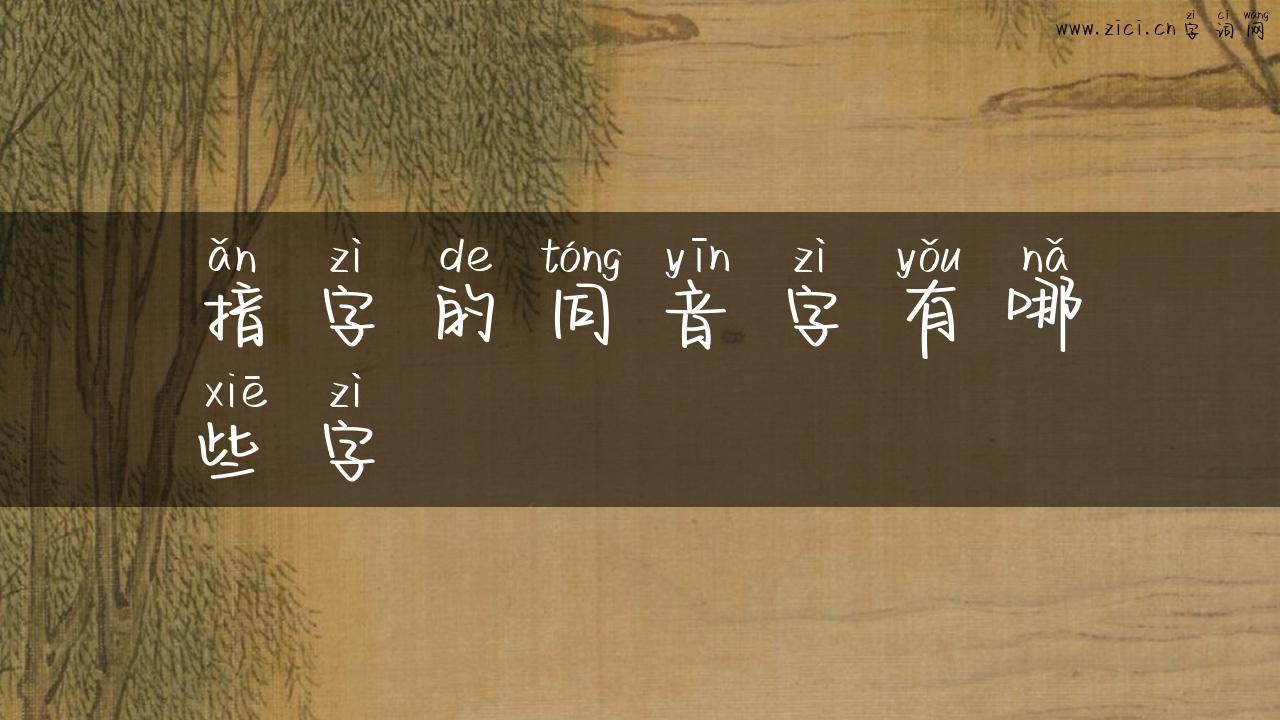 zì cí wǎng
www.zici.cn 字词网
ǎn zì de tóng yīn zì yǒu nǎ
揞字的同音字有哪
xiē zì
些字